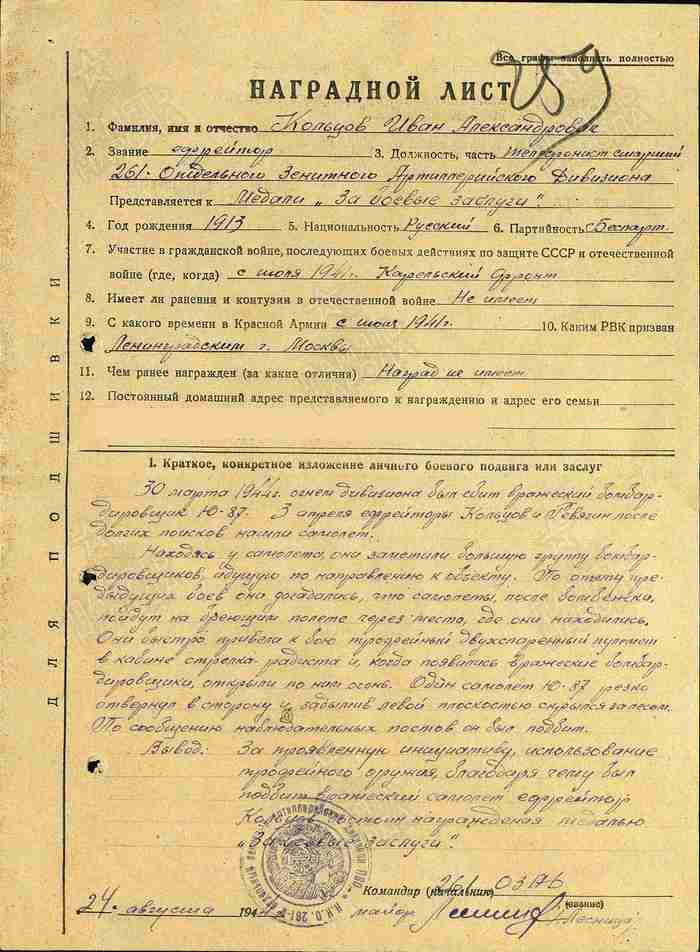 Все графы заполнять полностью
259
НАГРАДНОЙ ЛИСТ
1. Фамилия, имя и отчество Кольцов Иван Александрович
2. Звание ефрейтор 3. Должность, часть телефонист старший
261- Отдельного Зенитного Артиллерийского Дивизиона
Представляется к Медали „За боевые заслуги".
4. Год рождения 1913 5. Национальность Русский 6. Партийность Беспарт.
7. Участие в гражданской войне, последующих боевых действиях по защите СССР и отечественной
войне (где, когда) с июля 1941г. Карельский фронт
8. Имеет ли ранения и контузии в отечественной войне Не имеет
9. С какого времени в Красной Армии с июля 1941г. 10. Каким РВК призван
Ленинградским г. Москвы
11. Чем ранее награжден (за какие отличия) Наград не имеет
12. Постоянный домашний адрес представляемого к награждению и адрес его семьи
ДЛЯ ПОДШИВКИ
I. Краткое, конкретное изложение личного боевого подвига или заслуг
30 марта 1944г. огнем дивизиона был сбит вражеский бомбар-
дировщик Ю-87. 3 апреля ефрейторы Кольцов и Ревягин после
долгих поисков нашли самолет.
Находясь у самолета, они заметили большую группу бомбар-
дировщиков, идущую по направлению к объекту. По опыту пре-
дыдущих боев они догадались, что самолеты, после бомбежки,
пойдут на бреющем полете через место, где они находились.
Они быстро привели к бою трофейный двухспаренный пулемет
в кабине стрелка-радиста и, когда появились вражеские бомбар-
дировщики, открыли по ним огонь. Один самолет Ю-87 резко
отвернул в сторону и, задымив левой плоскостью скрылся за лесом.
По сообщению наблюдательных постов он был подбит.
Вывод: За проявленную инициативу, использование
трофейного оружия, благодаря чему был
подбит вражеский самолет ефрейтор
Кольцов достоин награждения медалью
„За боевые заслуги".
Командир (начальник) 261 ОЗАД
(звание)
24 августа 1944 майор Лесниц